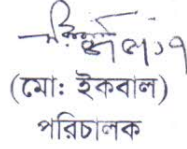 (মো: ইকবাল)
পরিচালক